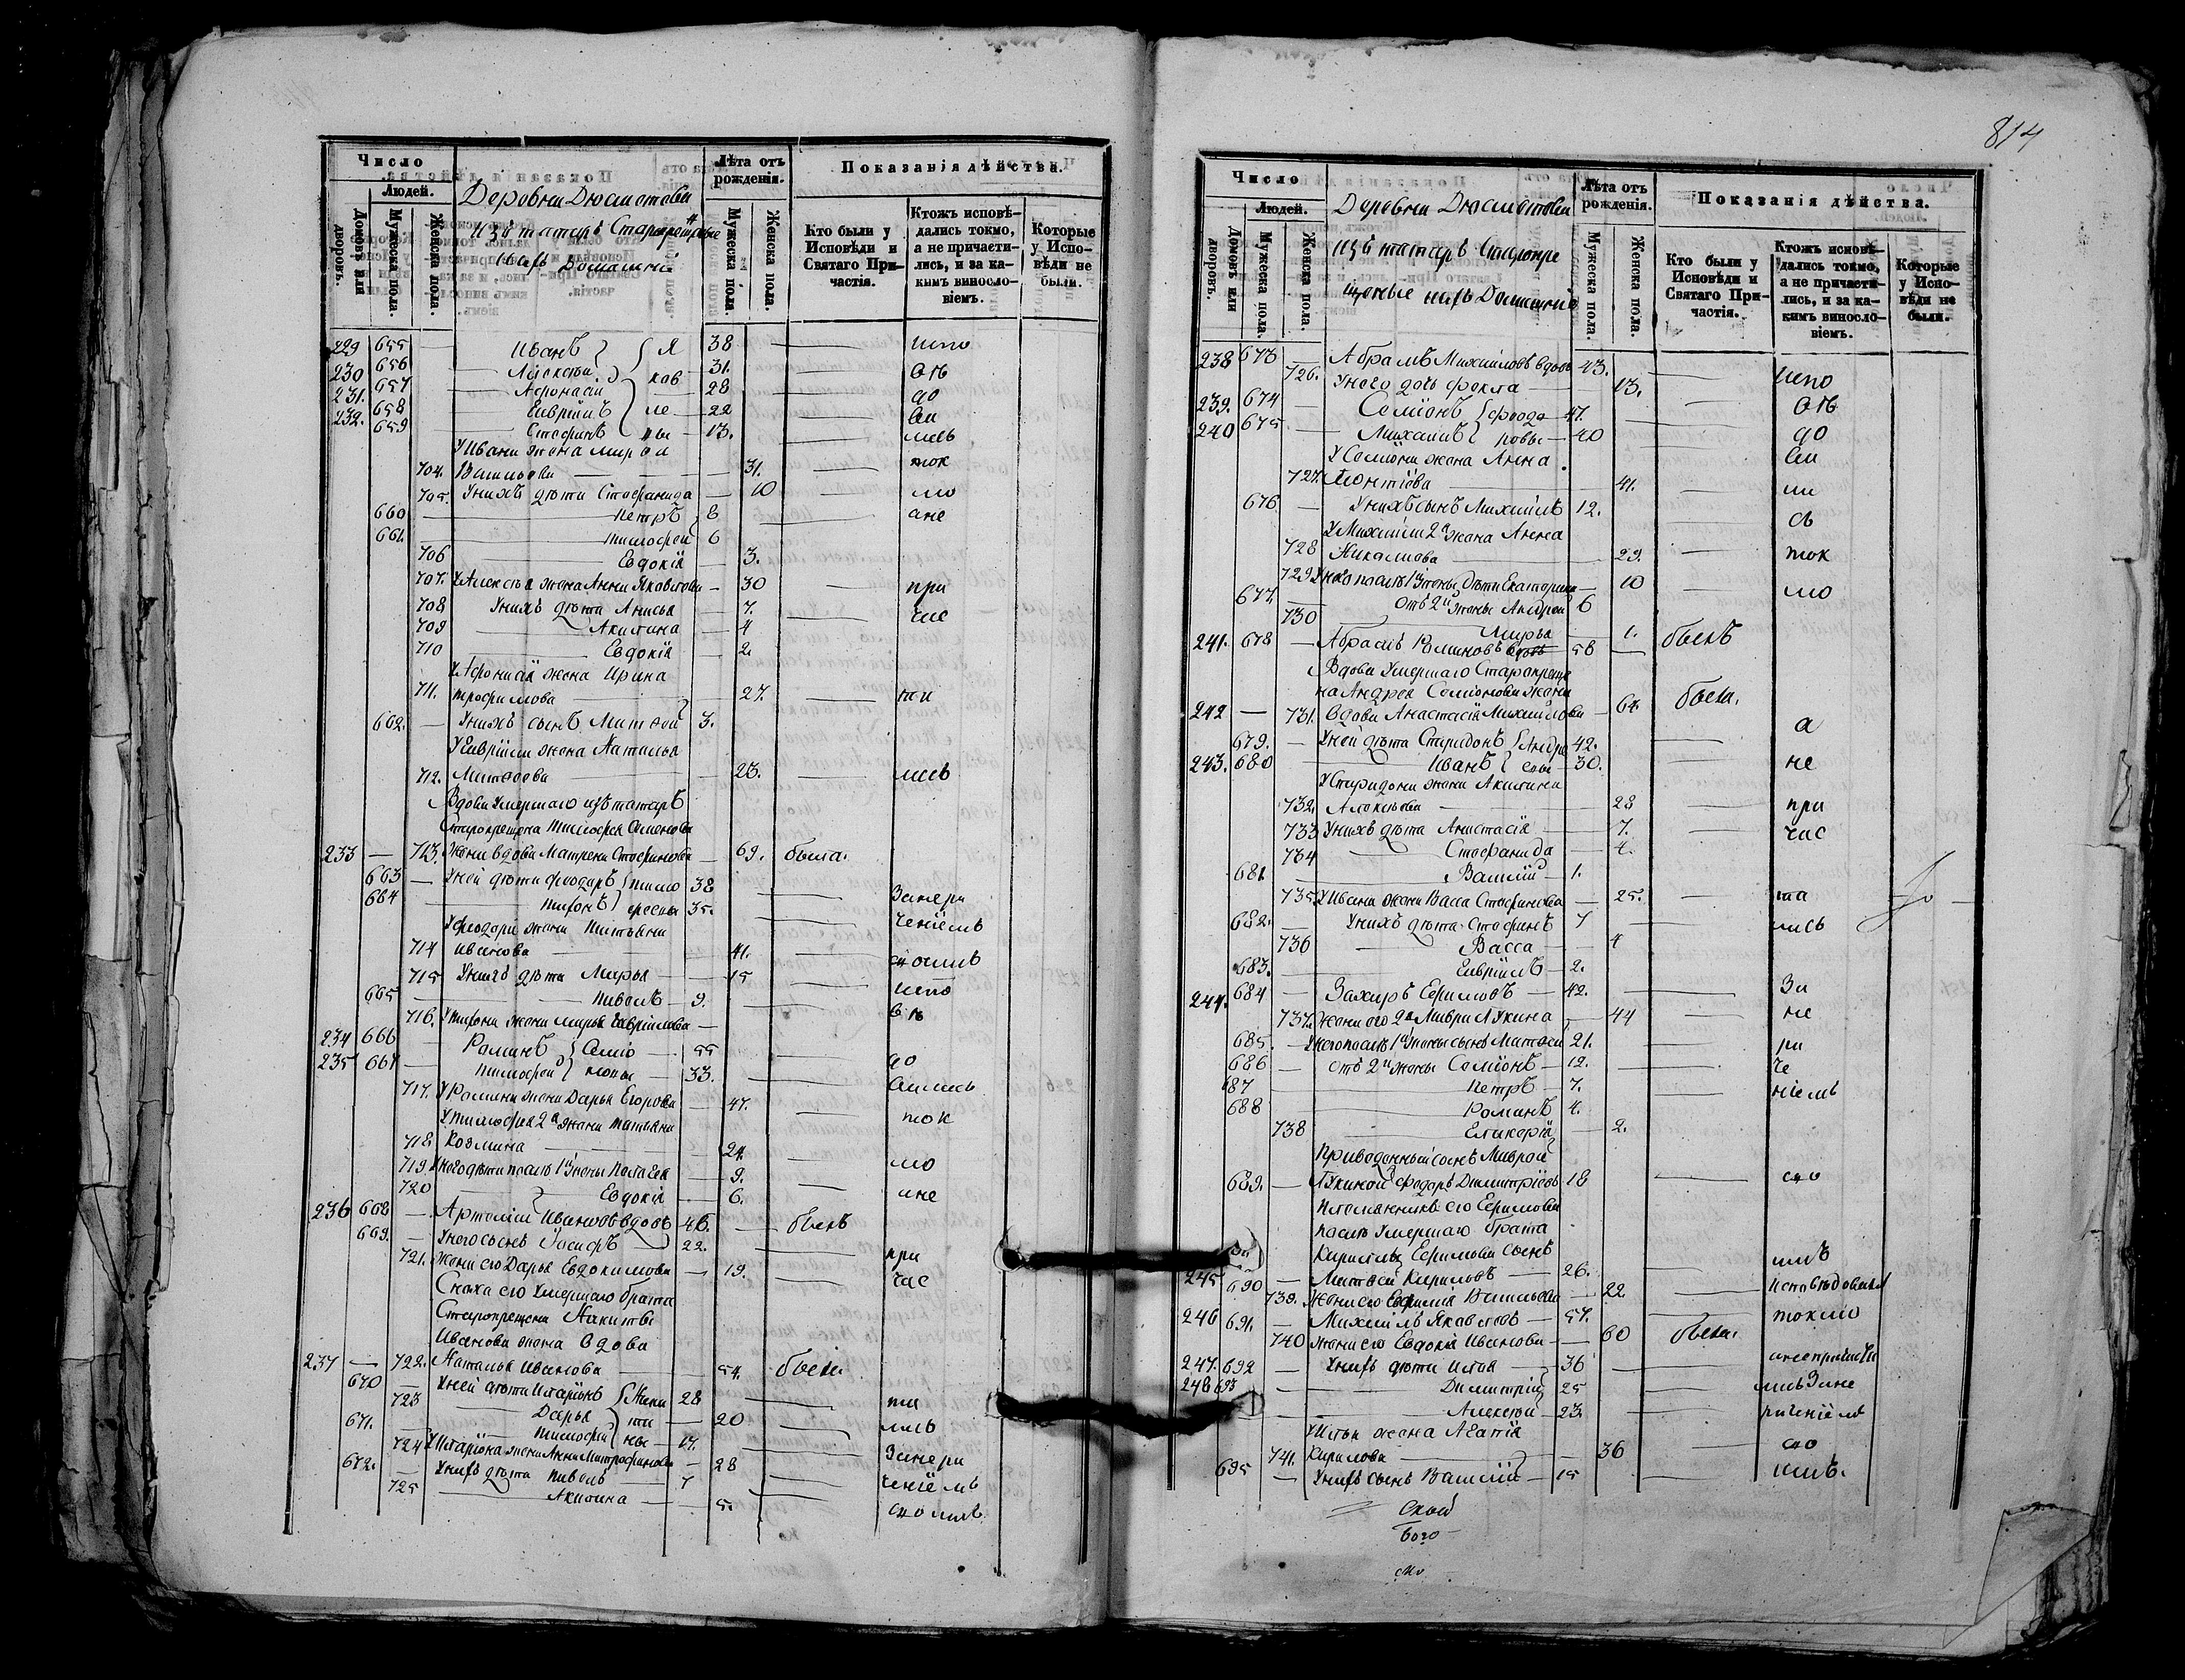 Число
Людей.
Домовъ или дворовъ.
Мужеска пола.
Женска пола.
Деревни Дюсметева
изъ татаръ Старокрещеные
ихъ Домашніе
Лѣта отъ рожденія.
Мужеска пола.
Женска пола.
Показанія дѣйства.
Кто были у Исповѣди и Святаго Причастія.
Ктожъ исповѣдались токмо, а не причастились, и за какимъ винословіемъ.
Которые у Исповѣди не были.
229 655 — Иванъ Я 38 — испо
230 656 — Алексѣй 31. — вѣ
231. 657 — Афонасій ков 28 — до
232. 658 — Гаврiилъ ле 22 — ва
659 — Стефанъ вы 13. — лись
У Ивана жена Марѳа
704. Васильева — 31. — ток
705. У нихъ дѣти Стефанида — 10 — мо
660 — Петръ 8 — ане
661. — Тимофей 6
706 — Евдокія — 3.
707. У Алексѣя жена Анна Яковлева — 30 — при
708 У нихъ дѣти Анисья — 7. — час
709 — Акилина — 4
710 — Евдокія — 2.
У Афонасія жена Ирина
711. Трофимова — 27. — ти
662. — У нихъ сынъ Матвей 3.
У Гавріила жена Наталья
712. Матвеева — 23. — лись
Вдова Умершаго изъ татаръ
Старокрещена Тимофея Семенова
233 — 713. Жена вдова Матрена Стефанова — 69. была.
663 — У ней дѣти Феодоръ Тимо 38 — Занери
664 — Тихонъ феевы 35. — ченіемъ
У Феодора жена Татьяна
714 Иванова — 41. — своимъ
715 У нихъ дѣти Марья — 15 — испо
665 — Павелъ — 9. — вѣ
716. У Тихона жена Марья Гавріилова —
234 666 — Романъ Семіо — 55 — до
235 667 — Тимофей новы — 33. — вались
717. У Романа жена Дарья Егорова — 47. — ток
У Тимофея 2я жена Татьяна
718 Козмина — 24. — мо
719. У него дѣти послѣ 1й жены Пелагея — 9.
720 — Евдокія — 6. — ане
236 668 — Артемій Ивановъ вдовъ 46. — былъ
669. — У него сынъ Іосифъ — 22. — при
721. Жена его Дарья Евдокимова — 19. — час
Сноха его Умершаго брата
Старокрещена Никиты
Иванова жена вдова
237 — 722. Наталья Иванова — 54. была
670 — У ней дѣти Иларіонъ Ники 28 — ти
723 — Дарья ти — 20 — лись
671. — Тимофей ны — 17.
724 У Иларіона жена Анна Митрофанова — 28 — Занери
672. — У нихъ дѣти Павелъ — 7 — ченіемъ
725 — Акилина — 5. — своимъ.
814
Число
Людей.
Домовъ или дворовъ.
Мужеска пола.
Женска пола.
Деревни Дюсметева
изъ татаръ Старокре
щеные ихъ Домашніе
Лѣта отъ рожденія.
Мужеска пола.
Женска пола.
Показанія дѣйства.
Кто были у Исповѣди и Святаго Причастія.
Ктожъ исповѣдались токмо, а не причастились, и за какимъ винословіемъ.
Которые у Исповѣди не были.
238 673 — Абрамъ Михайловъ вдовъ 43. — испо
726. У него дочь Фекла — 13. — вѣ
239. 674 — Семіонъ Феодо — 47.
240 675 — Михаилъ ровы — 40 — до
У Семіона жена Анна — ва
727. Леонтіева — 41. — ли
676 — У нихъ сынъ Михаилъ 12. — сь
У Михаила 2я жена Анна
728 Никалаева — 29. — ток
729 У него послѣ 1й жены дѣти Екатерина — 10 — мо
677. — Отъ 2й жены Андрей 6
730 — Марья — 1.
241. 678 — Абрамъ Романовъ вдовъ 58 — былъ
Вдова Умершаго Старокреще
на Андрея Семіонова жена
242 — 731. вдова Анастасія Михайлова — 64. была.
679. — У ней дѣти Спиридонъ Андре 42. — а
243. 680 — Иванъ евы — 30. — не
У Спиридона жена Акилина
732. Алексѣева — 28 — при
733 У нихъ дѣти Анастасія — 7. — час
734 — Стефанида — 4.
681. — Василій — 1.
735. У Ивана жена Васса Стефанова — 25. — ти
682. — У нихъ дѣти Стефанъ 7 — лись
736 — Васса — 4
683. — Гавріилъ — 2.
244. 684 — Захаръ Ефимовъ — 42. — За
737. Жена его 2я Мавра Лукина — 44 — не
685. — У него послѣ 1й жены сынъ Матвей 21. — ра
686 — отъ 2й жены Семіонъ — 12. — че
687 — Петръ — 7. — ніемъ
688 — Романъ 4.
738 — Гликерія — 2.
Приведенный сынъ Маврой
689. — Лукиной Феодоръ Димитріевъ 18 — сво
Племянникъ его Ефимова
послѣ Умершаго брата
Кирилы Ефимова сынъ — имъ
245 690 — Матвей Кириловъ — 26. — исповѣдовались
739. Жена его Евфимія Васильева — 22
246 691. — Михаилъ Яковлевъ — 57. — токмо
740 Жена его Евдокія Иванова — 60 была.
247. 692 — У нихъ дѣти Илья — 36 — анепричасти
248 693 — Димитрій 25 — лись Зане
— Алексѣй — 23. — раченіемъ
У Ильи жена Агапія — сво
741. Кирилова — 36
695 — У нихъ сынъ Василій — 15 — имъ.
Скай
Бого